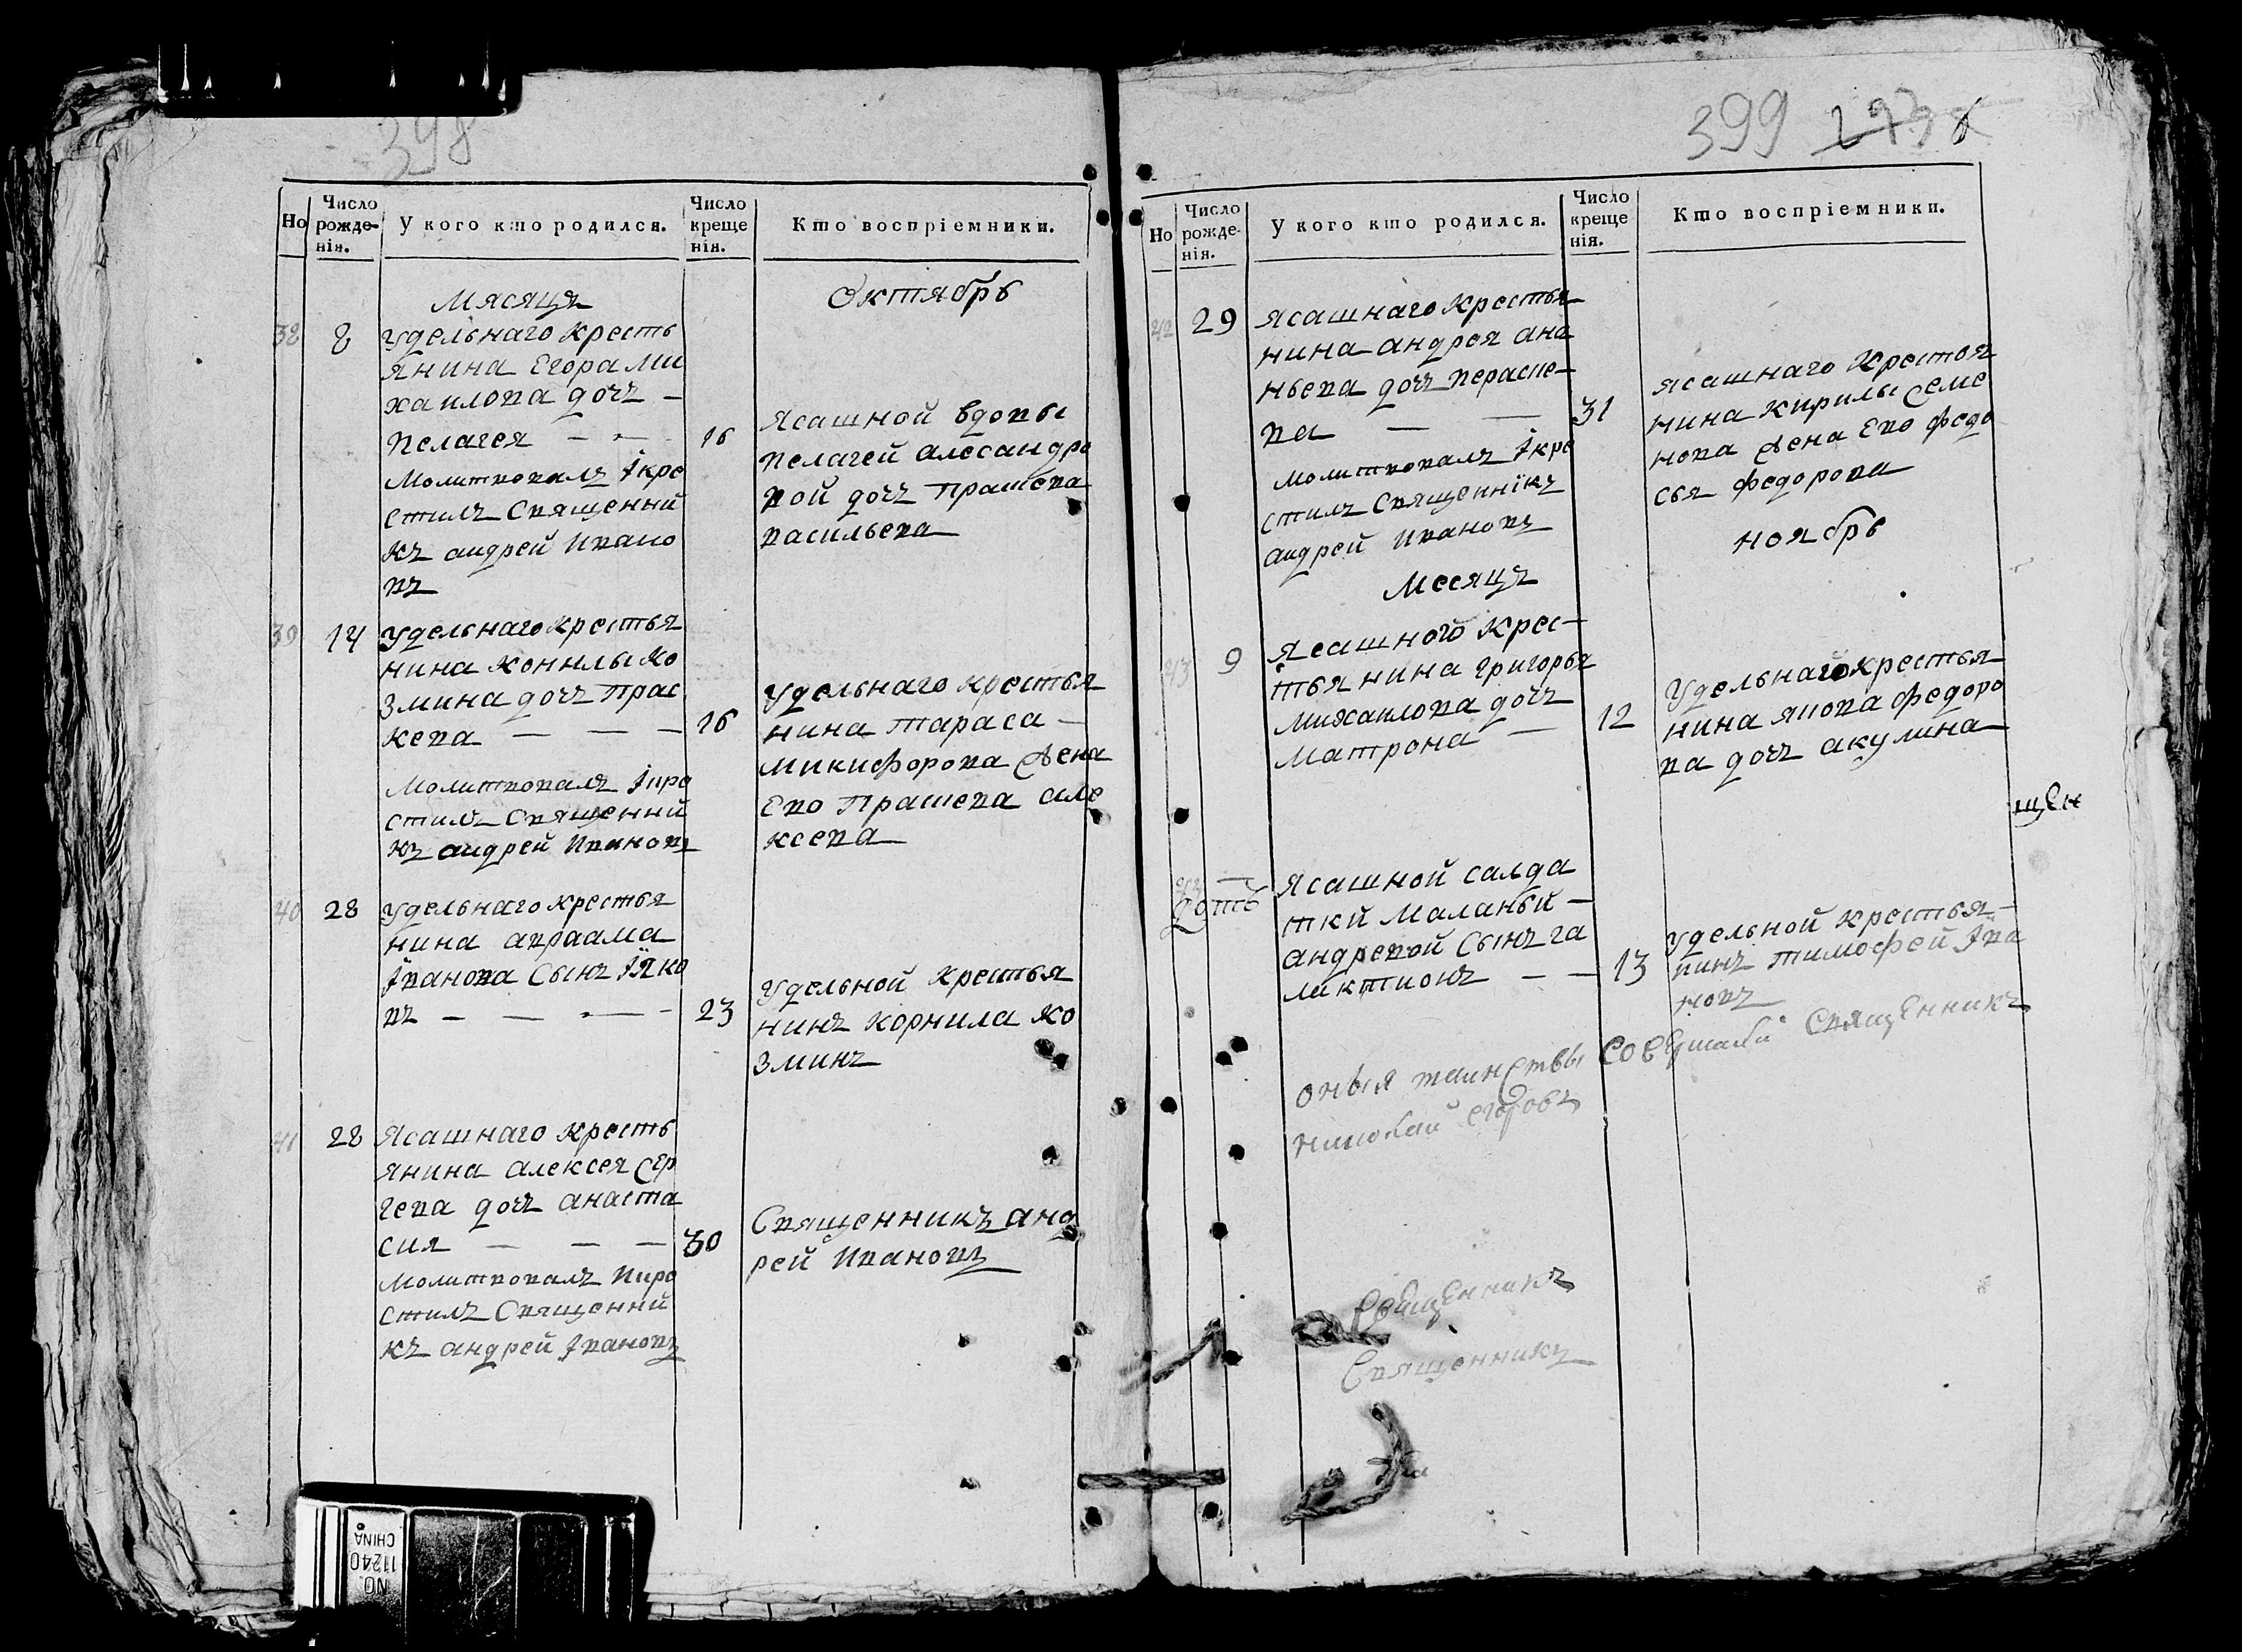 398
Но
Число рожде-нія.
У кого кто родился.
Число креще нія.
Кто воспріемники.
Мясяцъ
Октябрь
38
8
удельнаго кресть
янина Егора Ми
хаилова дочъ —
Пелагея — —
Молитвовалъ Iкре
стилъ Священни
къ андрей Ивано
въ
16
Ясашной вдовы
Пелагей алесандро
вой дочъ Прасковa
васильева
39
14
удельнаго крестья
нина Конилы Ко
змина дочъ Прас
кева — — —
Молитвовалъ
стилъ Священни
къ андрей Ивановъ
16
удельнаго крестья
нина Тараса —
Микифорова жена
Ево Праскева але
ксева
40
28
удельнаго крестья
нина авраама
Iванова Сынъ Iяко
въ — — — —
23
удельной крестья
нинъ корнила ко
зминъ
41
28
Ясашнаго кресть
янина алексея Сер
гева дочъ анаста
сия — — —
Молитвовалъ
стилъ Священни
къ андрей Iвановъ
30
Священникъ анд
рей Ивановъ
399
Но
Число рожде-нія.
У кого кто родился.
Число креще нія.
Кто воспріемники.
42
29
ясашнаго крестья
нина андрея ана
ньева дочъ Параске—
ва — —
Молитвовалъ Iкре
стилъ Священнiкъ
андрей Ивановъ
31
ясашнаго крестья
нина кирилы Семе
нова жена Ево Федо
сья Федорова
Месяцъ
ноябрь
43
9
Ясашного крес—
тьянина григорья
михаилова дочъ
матрона —
12
удельнаго крестья
нина якова федоро
ва дочъ акулина
щен
44
Ясашной салда
тки Маланьи —
андревой Сынъ га
лактионъ — —
13
удельной крестья—
нинъ тимофей Iва
новъ
оныя таинствы Священникъ
николай егоровъ
Священникъ
Священникъ